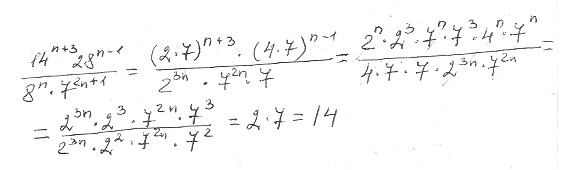 \frac{14^{n+3} 28^{n-1}}{8^n \cdot 7^{2n+1}} = \frac{(2 \cdot 7)^{n+3} \cdot (4 \cdot 7)^{n-1}}{2^{3n} \cdot 7^{2n} \cdot 7} = \frac{2^n \cdot 2^3 \cdot 7^n \cdot 7^3 \cdot 4^n \cdot 7^n}{4 \cdot 7 \cdot 7 \cdot 2^{3n} \cdot 7^{2n}} =
= \frac{2^{3n} \cdot 2^3 \cdot 7^{2n} \cdot 7^3}{2^{3n} \cdot 2^2 \cdot 7^{2n} \cdot 7^2} = 2 \cdot 7 = 14